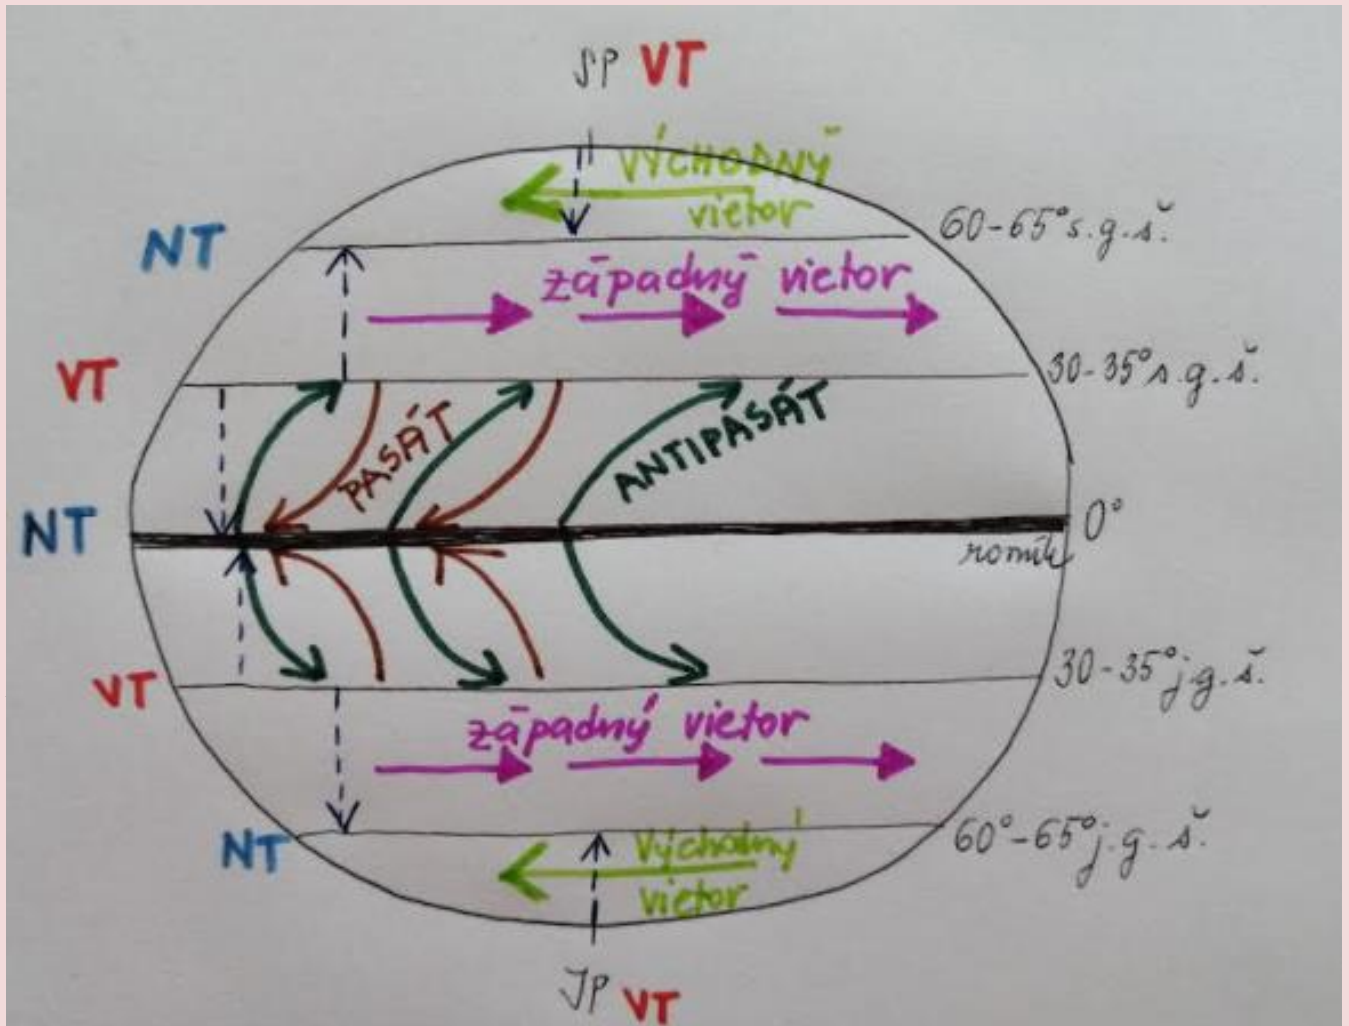 SP VT
VÝCHODNÝ
vietor
60-65° s.g.š.
NT
západný vietor
VT
30-35° s.g.š.
PASÁT
ANTIPASÁT
NT
0°
rovník
VT
30-35° j.g.š.
západný vietor
NT
Východný
vietor
60°-65° j.g.š.
JP VT